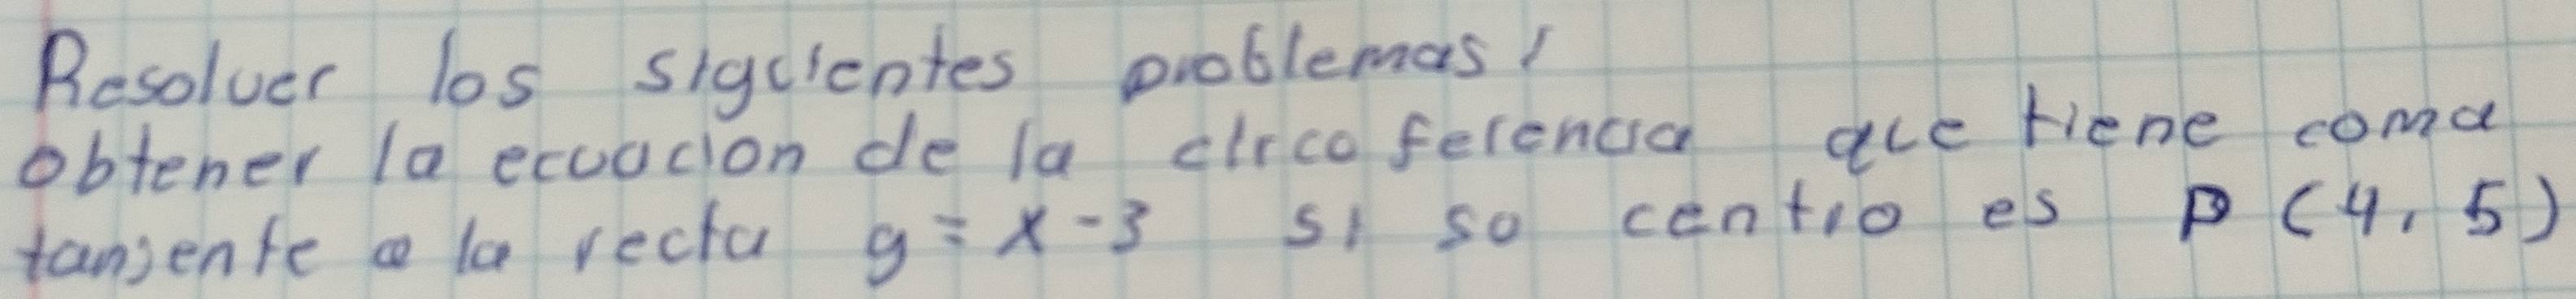 Resolver los siguientes problemas!
obtener la ecuacion de la circoferencia que tiene coma
tanjente a la recta y = x - 3 si so centro es P (4, 5)